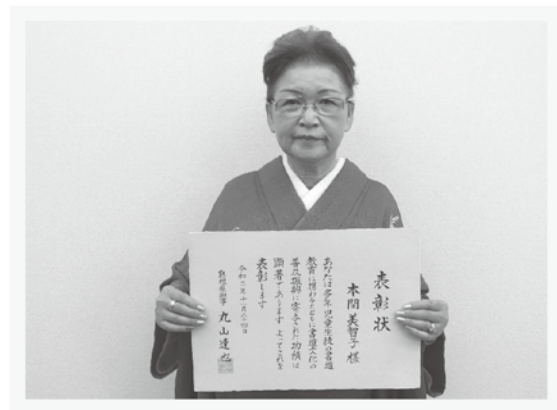 表彰状
本間美智子様
あなたは多年児童生徒の書道
教育に携わるとともに書道文化の
普及振興に寄与された功績は
顕著であります よってこれを
表彰します
令和二年十一月二十四日
島根県知事 丸山達也